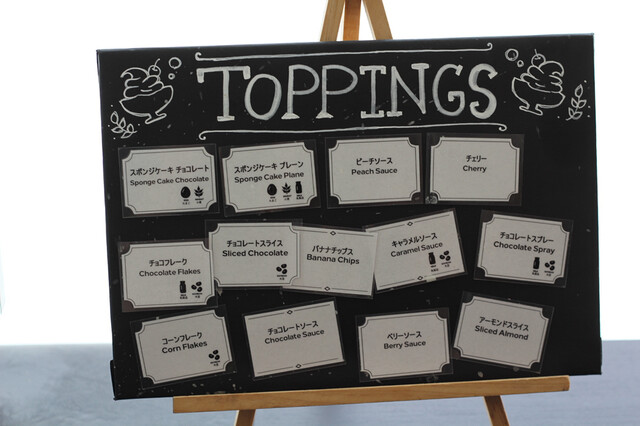 TOPPINGS
スポンジケーキ チョコレート
Sponge Cake Chocolate
スポンジケーキ プレーン
Sponge Cake Plane
ピーチソース
Peach Sauce
チェリー
Cherry
チョコフレーク
Chocolate Flakes
チョコレートスライス
Sliced Chocolate
バナナチップス
Banana Chips
キャラメルソース
Caramel Sauce
チョコレートスプレー
Chocolate Spray
コーンフレーク
Corn Flakes
チョコレートソース
Chocolate Sauce
ベリーソース
Berry Sauce
アーモンドスライス
Sliced Almond